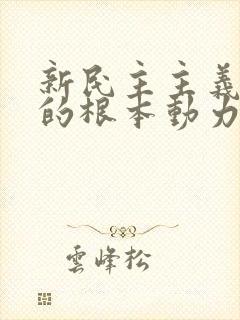 新民主主義
的根本動力
雲峰松